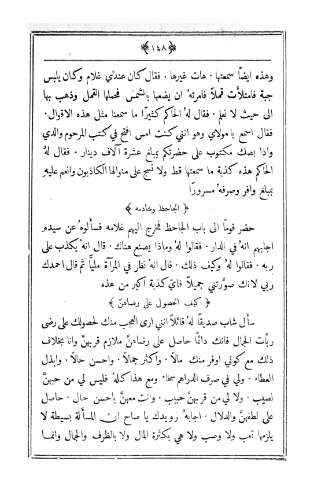 ﴿ ١٤٨ ﴾
وهذه ايضاً سمعتها . هات غيرها . فقال كان عندي غلام وكان يلبس
جبة فامتلأت قملاً فامرته ان يضعها بالشمس فحملها القمل وذهب بها
الى حيث لا نعلم . فقال له الحاكم كثيراً ما سمعنا مثل هذه الاقوال .
فقال اسمع يا مولاي وهو انني كنت امس افتح في كتب المرحوم والدي
واذا بصك مكتوب على حضرتكم بمبلغ عشرة آلاف دينار . فقال له
الحاكم هذه كذبة ما سمعتها قط ولا نسج على منوالها الكاذبون وانعم عليه
بمبلغ وافر وصرفه مسروراً
﴿ الجاحظ وخادمه ﴾
حضر قوماً الى باب الجاحظ فخرج اليهم غلامه فسألوه عن سيده
اجابهم انه في الدار . فقالوا له وماذا يصنع هناك . قال انه يكذب على
ربه . فقالوا له وكيف ذلك . قال انه نظر في المرآة مليًّا ثم قال احمدك
ربي لانك صورتني جميلاً فاي كذبة اكبر من هذه
﴿ كيف الحصول على رضاهنّ ﴾
سأل شاب صديقاً له قائلاً انني ارى العجب منك لحصولك على رضى
ربات الجمال فانك دائماً حاصل على رضاهنّ ملازم قربهنّ وانا بخلاف
ذلك مع كوني اوفر منك مالاً . واكثر جمالاً . واحسن حالاً . وابذل
العطاء . ولي في صرف الدراهم سخاء . ومع هذا كله فليس لي من حبهنّ
نصيب . ولا لي من قربهنّ حبيب . وانت معهنّ باحسن حال . حاصل
على لطفهنّ والدلال . اجابه رويدك يا صاح ان المسألة بسيطة لا
يلزمها تعب ولا وصب ولا هي بكثرة المال ولا بالظرف والجمال وانما